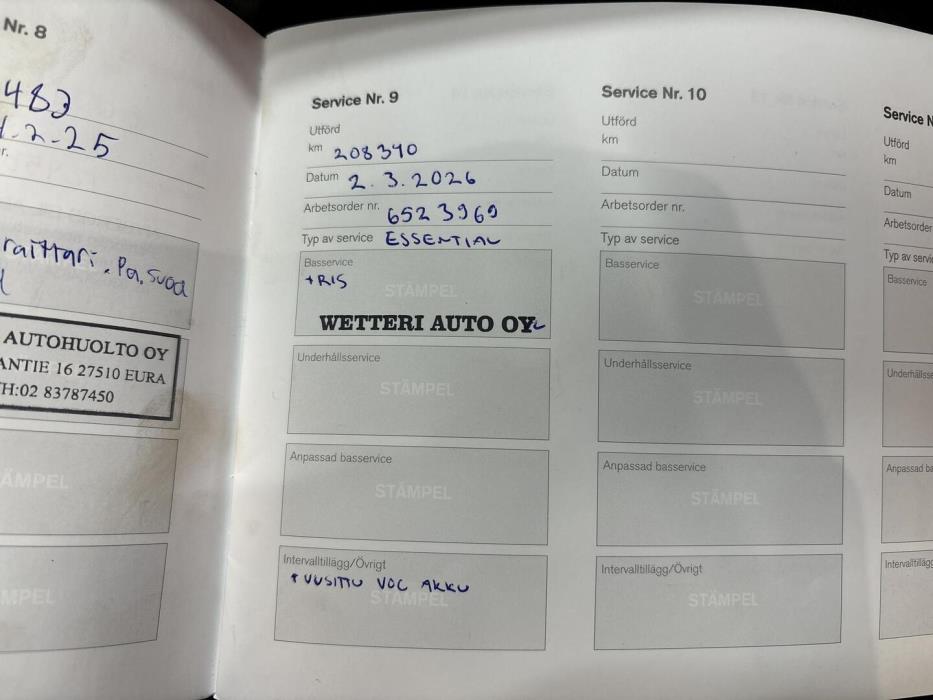 Nr. 8
483
.2-25
r.
raittari. Pa. suod
AUTOHUOLTO OY
ANTIE 16 27510 EURA
H:02 83787450
ÄMPEL
MPEL
Service Nr. 9
Utförd
km 208340
Datum 2.3.2026
Arbetsorder nr. 6523969
Typ av service ESSENTIAL
Basservice
+RIS
STÄMPEL
WETTERI AUTO OY
Underhållsservice
STÄMPEL
Anpassad basservice
STÄMPEL
Intervalltillägg/Övrigt
+ UUSITTU VOC AKKU
STÄMPEL
Service Nr. 10
Utförd
km
Datum
Arbetsorder nr.
Typ av service
Basservice
STÄMPEL
Underhållsservice
STÄMPEL
Anpassad basservice
STÄMPEL
Intervalltillägg/Övrigt
STÄMPEL
Service N
Utförd
km
Datum
Arbetsorder
Typ av servi
Basservice
Underhålls
Anpassad ba
Intervalltilläg